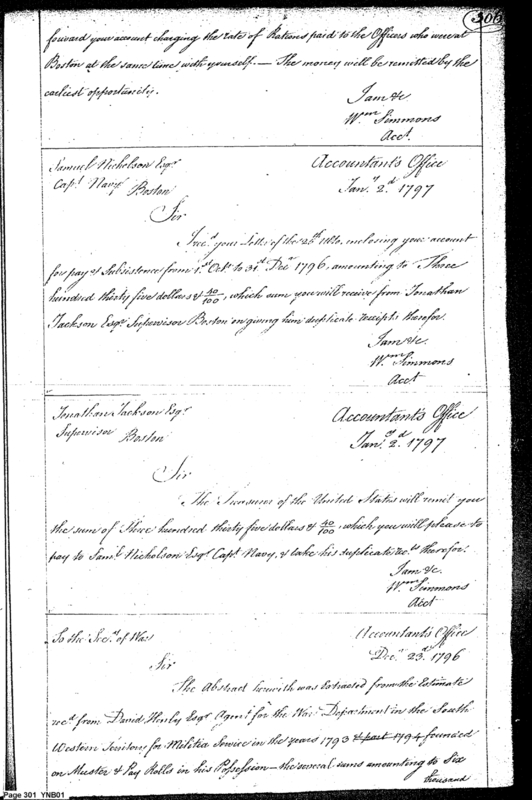 306
forward your account charging the rate of Rations paid to the Officers who were at
Boston at the same time with yourself. — The money will be remitted by the
earliest opportunity.
I am &c
Wm Simmons
Acct.
Samuel Nicholson Esqr
Capt. Navy
Boston
Accountants Office
Jany. 2d 1797
Sir
I recd your Letter of the 26th Ulto. inclosing your account
for pay & Subsistence from 1st Octr to 31st Decr 1796, amounting to Three
hundred thirty five dollars & 40/100, which sum you will receive from Jonathan
Jackson Esqr Supervisor Boston on giving him duplicate receipts therefor.
I am &c.
Wm Simmons
Acct
Jonathan Jackson Esqr
Supervisor
Boston
Accountants Office
Jany. 2d. 1797
Sir
The Treasurer of the United States will remit you
the sum of Three hundred thirty five dollars & 40/100, which you will please to
pay to Saml. Nicholson Esqr Capt. Navy, & take his duplicate rects therefor.
I am &c.
Wm Simmons
Acct
To the Secy of War
Accountants Office
Decr 23d. 1796
Sir
The Abstract herewith was extracted from the Estimate
recd from David Henley Esqr Agent for the War Department in the South
Western Territory for Militia Service in the years 1793 & part 1794 founded
on Muster & Pay Rolls in his Possession — the several sums amounting to Six
thousand
Page 301 YNB01